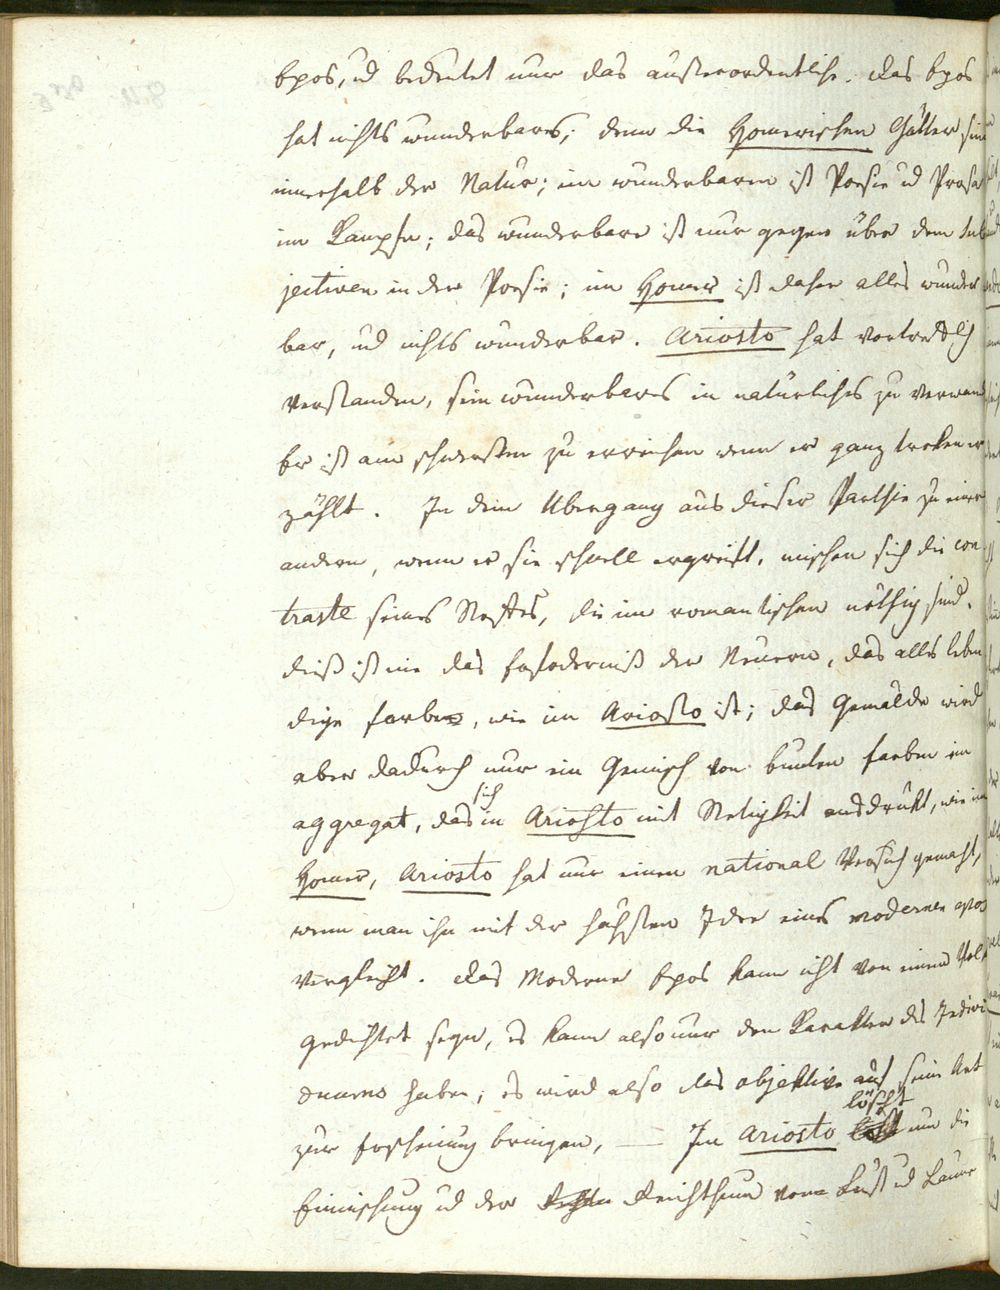 Epos, ud bedeutet nur das außerordentliche. das Epos
hat nichts wunderbares; denn die Homerischen Götter sind
innerhalb der Natur; im wunderbaren ist Poesie ud Prosa
im Kampfe; das wunderbare ist nur gegen über dem Sub
jectiven in der Poesie; im Homer ist daher alles wunder
bar, ud nichts wunderbar. Ariosto hat vortreflich
verstanden, sein wunderbares in natürliches zu verwand
Er ist am schwersten zu erreichen wenn er ganz troken er
zählt. In dem Übergang aus dieser Parthie zu einer
andern, wenn er sie schnell ergreift, mischen sich die con
traste seines Stoffes, die im romantischen nöthig sind.
dieß ist nie das Erforderniß der Neuern, das alles leben
dige Farbe, wie im Ariosto ist; das Gemälde wird
aber dadurch nur ein Gemisch von bunten Farben ein
sich
aggregat, das in Ariosto mit Stetigkeit ausdrükt, wie im
Homer, Ariosto hat nur einen national Versuch gemacht,
wenn man ihn mit der höchsten Idee eines modernen epos
vergleicht. das Moderne Epos kann nicht von einem Volk
gedichtet seyn, es kann also nur den Karakter des Indivi
duums haben; es wird also das objektive auf seine Art
löscht
zur Erscheinung bringen, — Im Ariosto nur die
Einmischung ud der Reichthum von Lust ud Laune